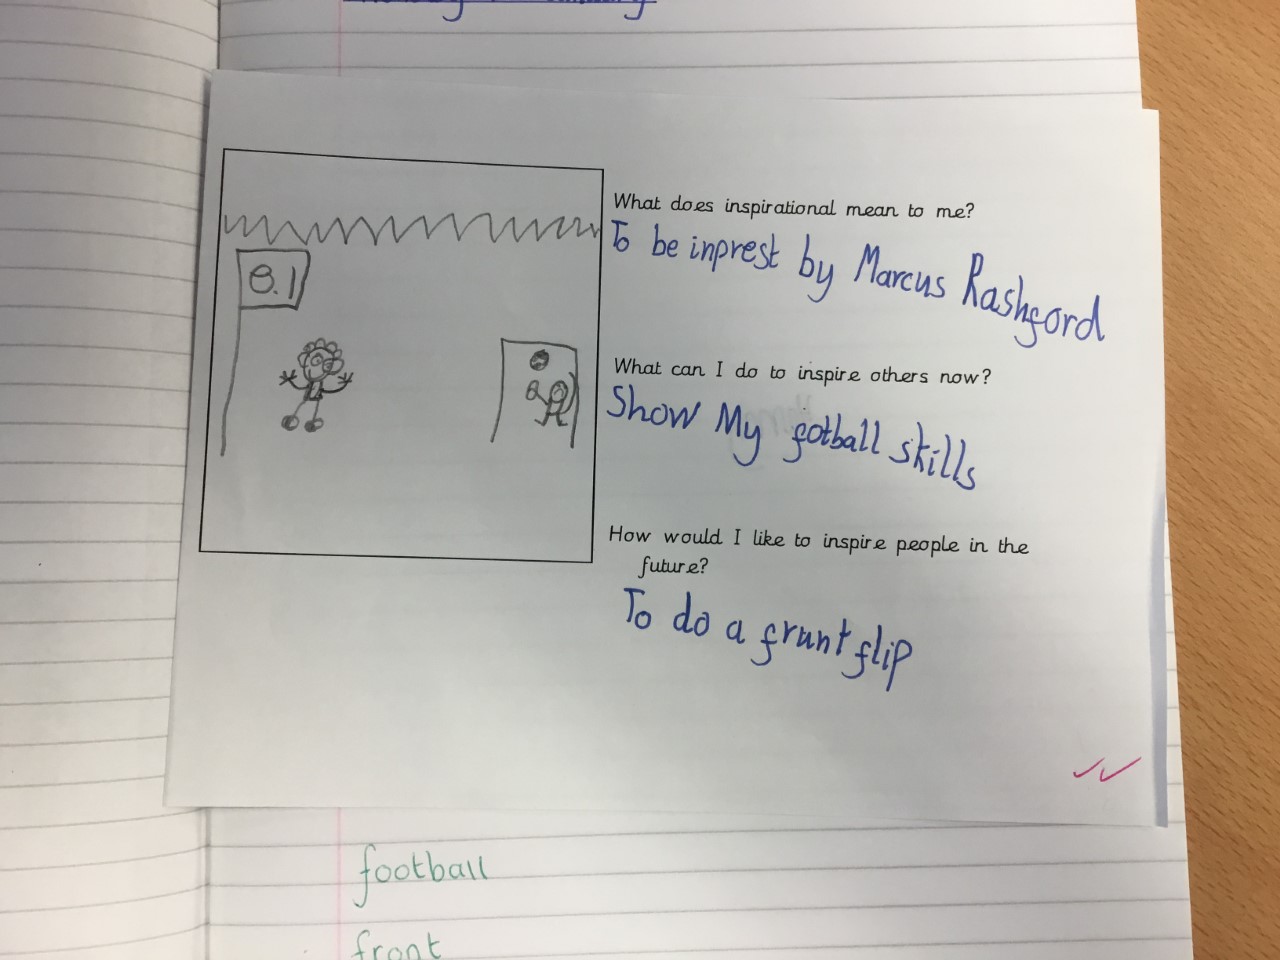 8.1
What does inspirational mean to me?
To be inprest by Marcus Rashford
What can I do to inspire others now?
Show My fotball skills
How would I like to inspire people in the
future?
To do a frunt flip
football
front